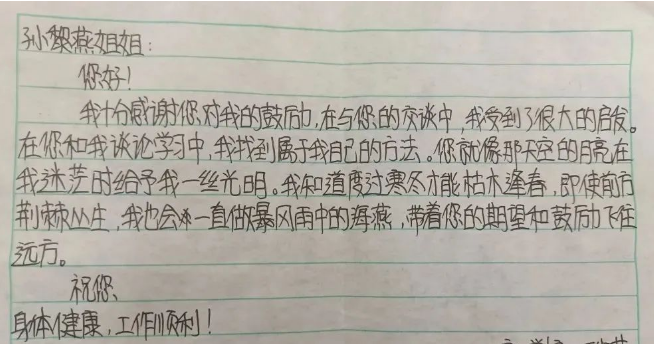 孙黎燕姐姐：
您好！
我十分感谢您对我的鼓励，在与您的交谈中，我受到了很大的启发。
在您和我谈论学习中，我找到属于我自己的方法。您就像那天空的月亮在
我迷茫时给予我一丝光明。我知道度过寒冬才能枯木逢春，即使前方
荆棘丛生，我也会一直做暴风雨中的海燕，带着您的期望和鼓励飞往
远方。
祝您、
身体健康，工作顺利！